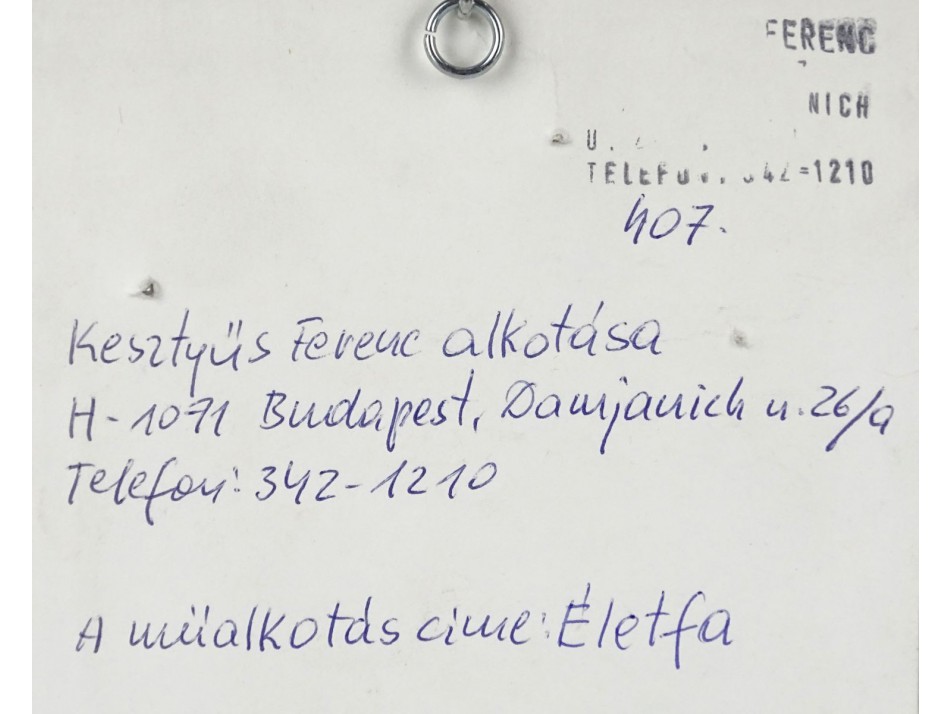 FERENC
NICH
U.
407.
Kesztyűs Ferenc alkotása
H-1071 Budapest, Damjanich u. 26/a
Telefon: 342-1210
A műalkotás címe: Életfa